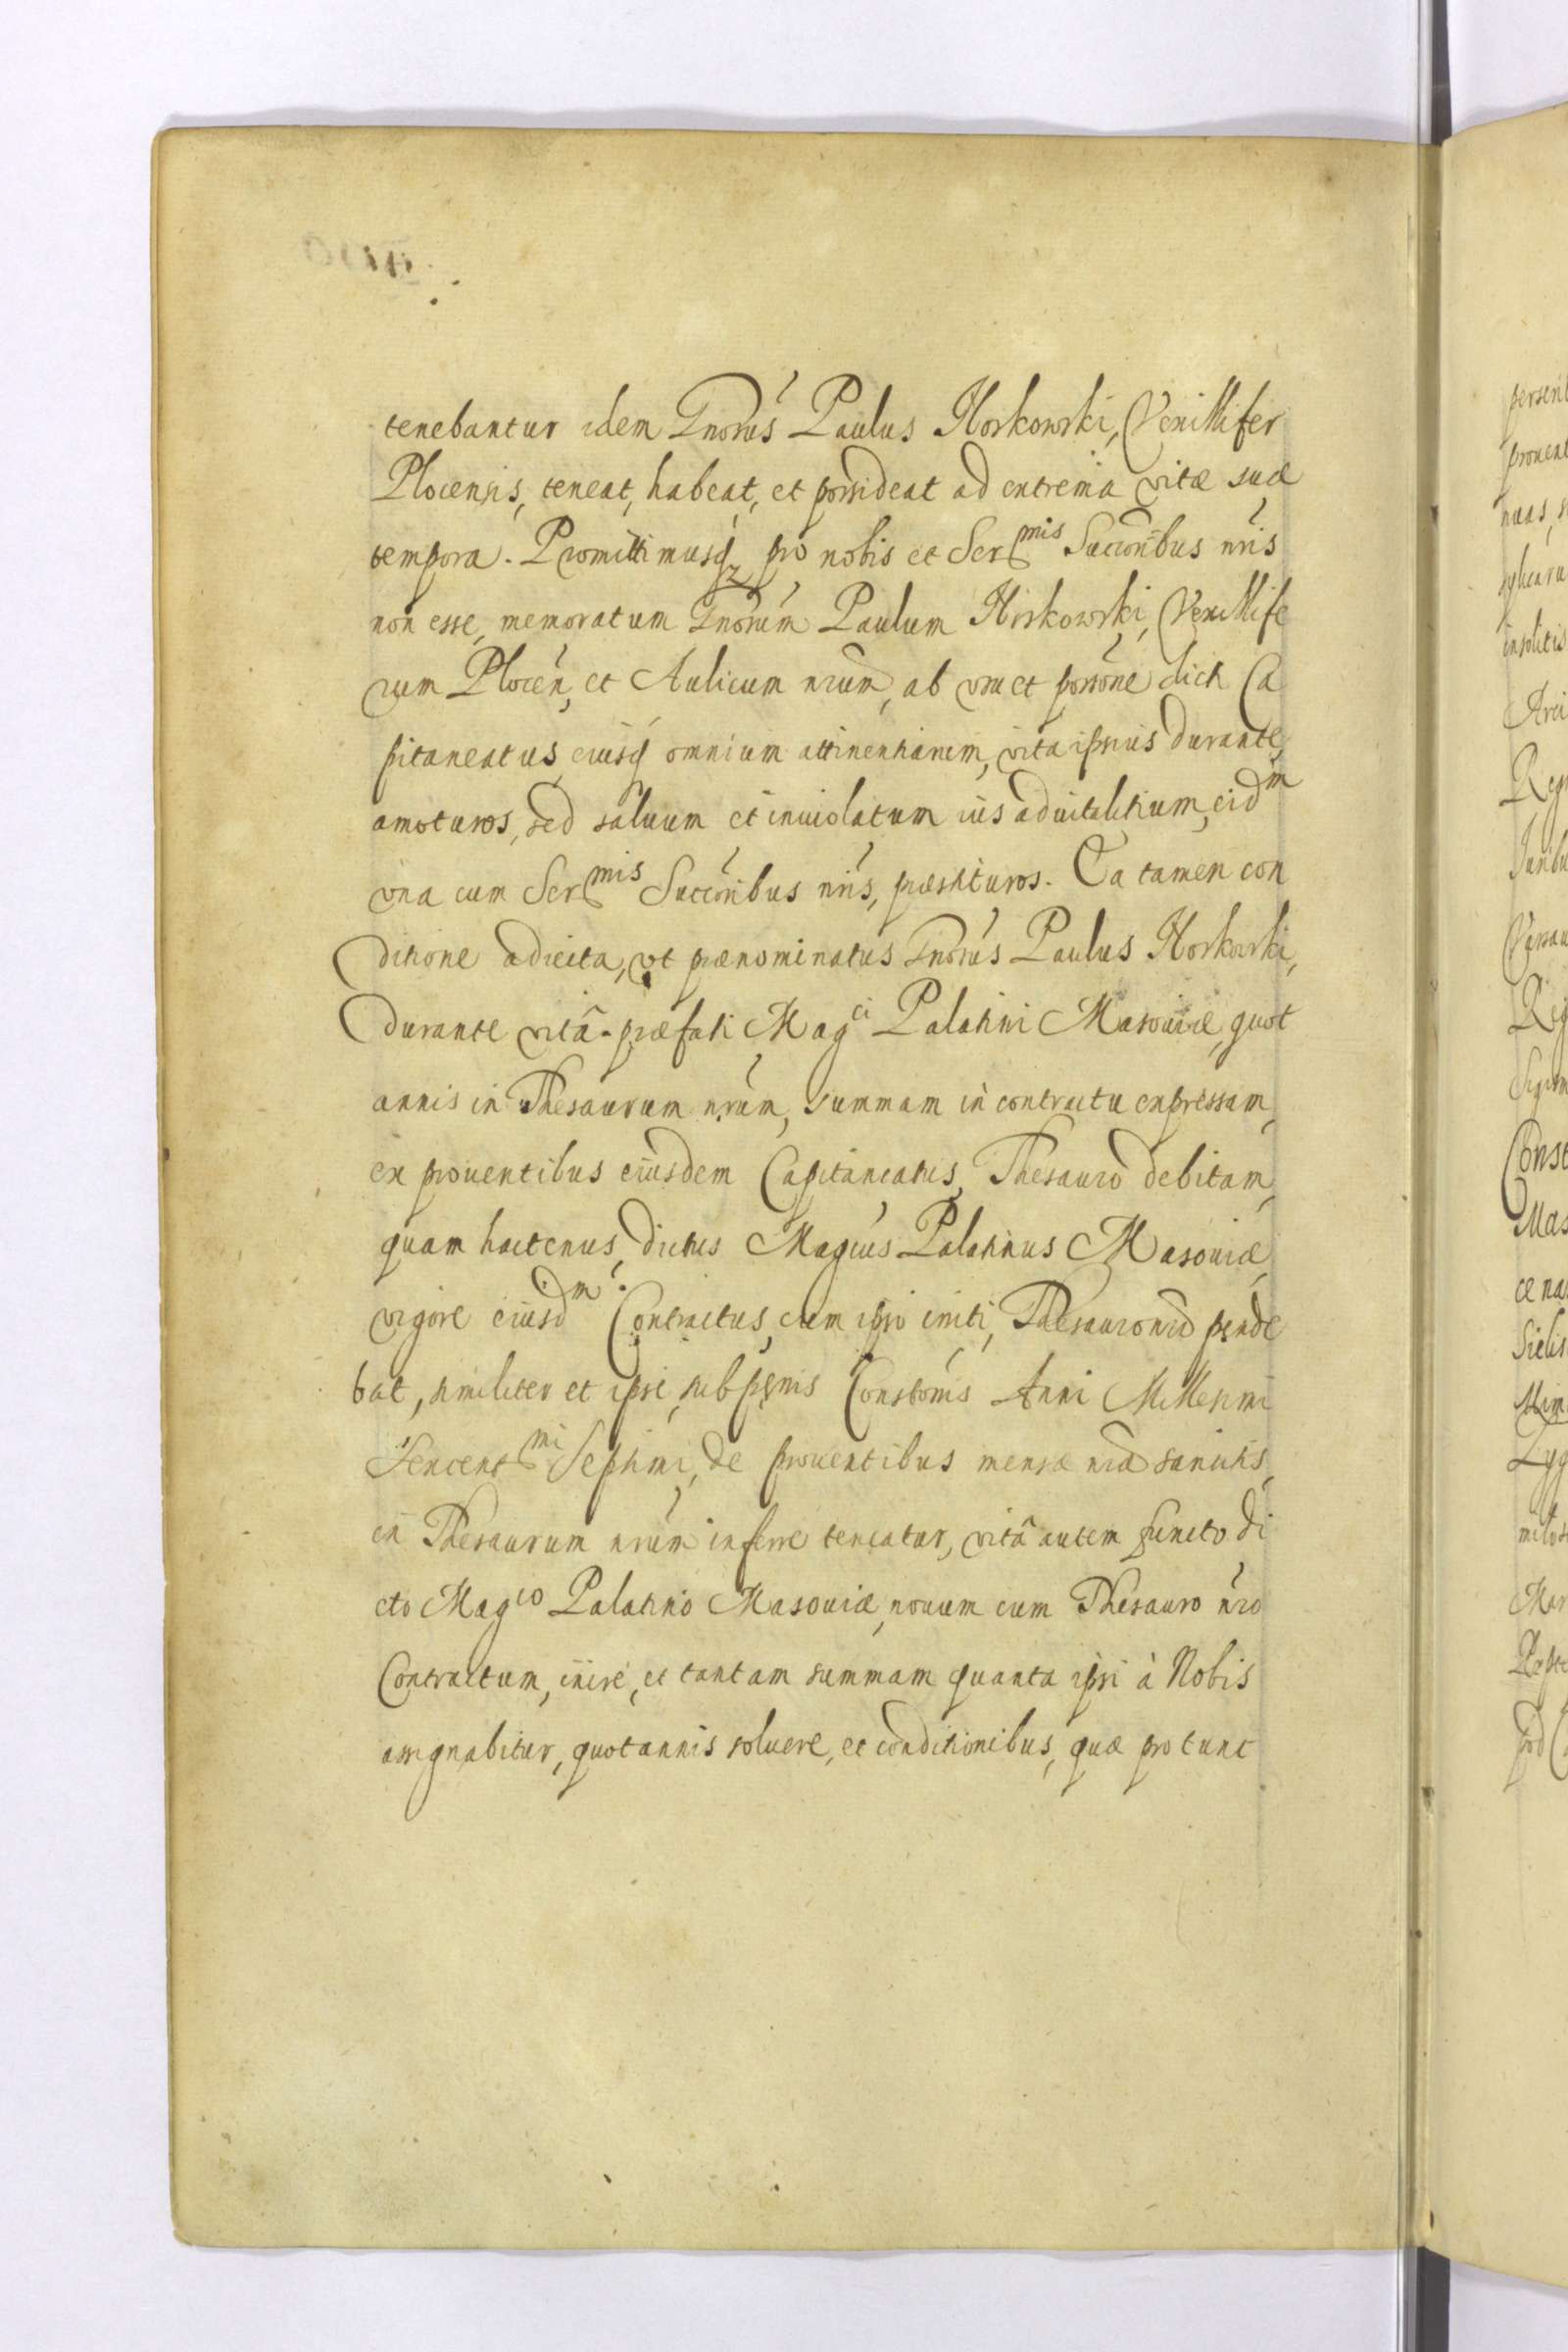 tenebantur idem Gnosus Paulus Hoskowski, Vexillifer
Plocensis, teneat, habeat, et possideat ad extrema vitæ suæ
tempora. Promittimusq pro nobis et Sermis Succoribus nris
non esse, memoratum Gnosum Paulum Hoskowski, Vexillife
rum Plocen, et Aulicum nrum, ab usu et possone dicti Ca
pitaneatus eiusq omnium attinentiarum, vita ipsius durante,
amoturos, sed saluum et inuiolatum ius aduitalitium, eidm
vna cum Sermis Succoribus nris, præstituros. Ea tamen con
ditione adiecta, vt prænominatus Gnosus Paulus Hoskowski,
durante vitâ præfati Magci Palatini Masouiæ, quot
annis in Thesaurum nrum, summam in contractu expressam,
ex prouentibus eiusdem Capitaneatus, Thesauro debitam,
quam hactenus, dictus Magcus Palatinus Masouiæ,
vigore eiusdm Contractus, cum ipso initi, Thesauro nro pende
bat, similiter et ipse, sub pænis Constonis Anni Millesimi
Sexcentmi Septimi, de prouentibus mensæ nræ sancitis,
in Thesaurum nrum inferre teneatur, vitâ autem functo di
cto Magco Palatino Masouiæ, nouum cum Thesauro nro
Contractum, inire, et tantam summam quanta ipsi à Nobis
assignabitur, quotannis soluere, et conditionibus, quæ pro tunc